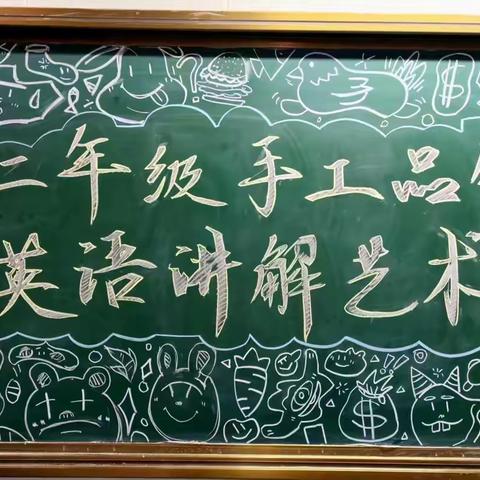 二年级手工品
英语讲解艺术